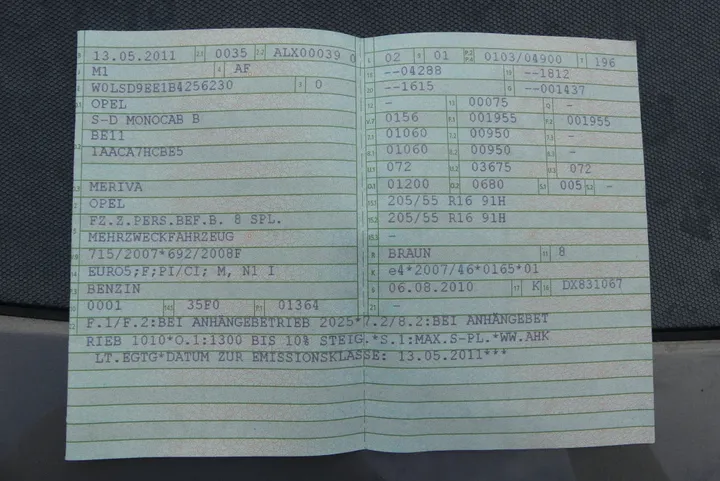 B 13.05.2011 2.1 0035 2.2 ALX00039 0
M1 4 AF
W0LSD9EE1B4256230 3 0
OPEL
S-D MONOCAB B
BE11
1AACA7HCBE5
MERIVA
OPEL
FZ.Z.PERS.BEF.B. 8 SPL.
MEHRZWECKFAHRZEUG
715/2007*692/2008F
EURO5;F;PI/CI; M, N1 I
BENZIN
0001 14.1 35F0 P.1 01364
L 02 9 01 P.2 P.4 0103/04900 T 196
18 --04288 19 --1812
20 --1615 G --001437
12 - 13 00075 Q -
V.7 0156 F.1 001955 F.2 001955
7.1 01060 7.2 00950 7.3 -
8.1 01060 8.2 00950 8.3 -
U.1 072 U.2 03675 U.3 072
O.1 01200 O.2 0680 S.1 005 S.2 -
15.1 205/55 R16 91H
15.2 205/55 R16 91H
15.3 -
R BRAUN 11 8
K e4*2007/46*0165*01
6 06.08.2010 17 K 16 DX831067
21 -
F.1/F.2:BEI ANHÄNGEBETRIEB 2025*7.2/8.2:BEI ANHÄNGEBET
RIEB 1010*O.1:1300 BIS 10% STEIG.*S.1:MAX.S-PL.*WW.AHK
LT.EGTG*DATUM ZUR EMISSIONSKLASSE: 13.05.2011***